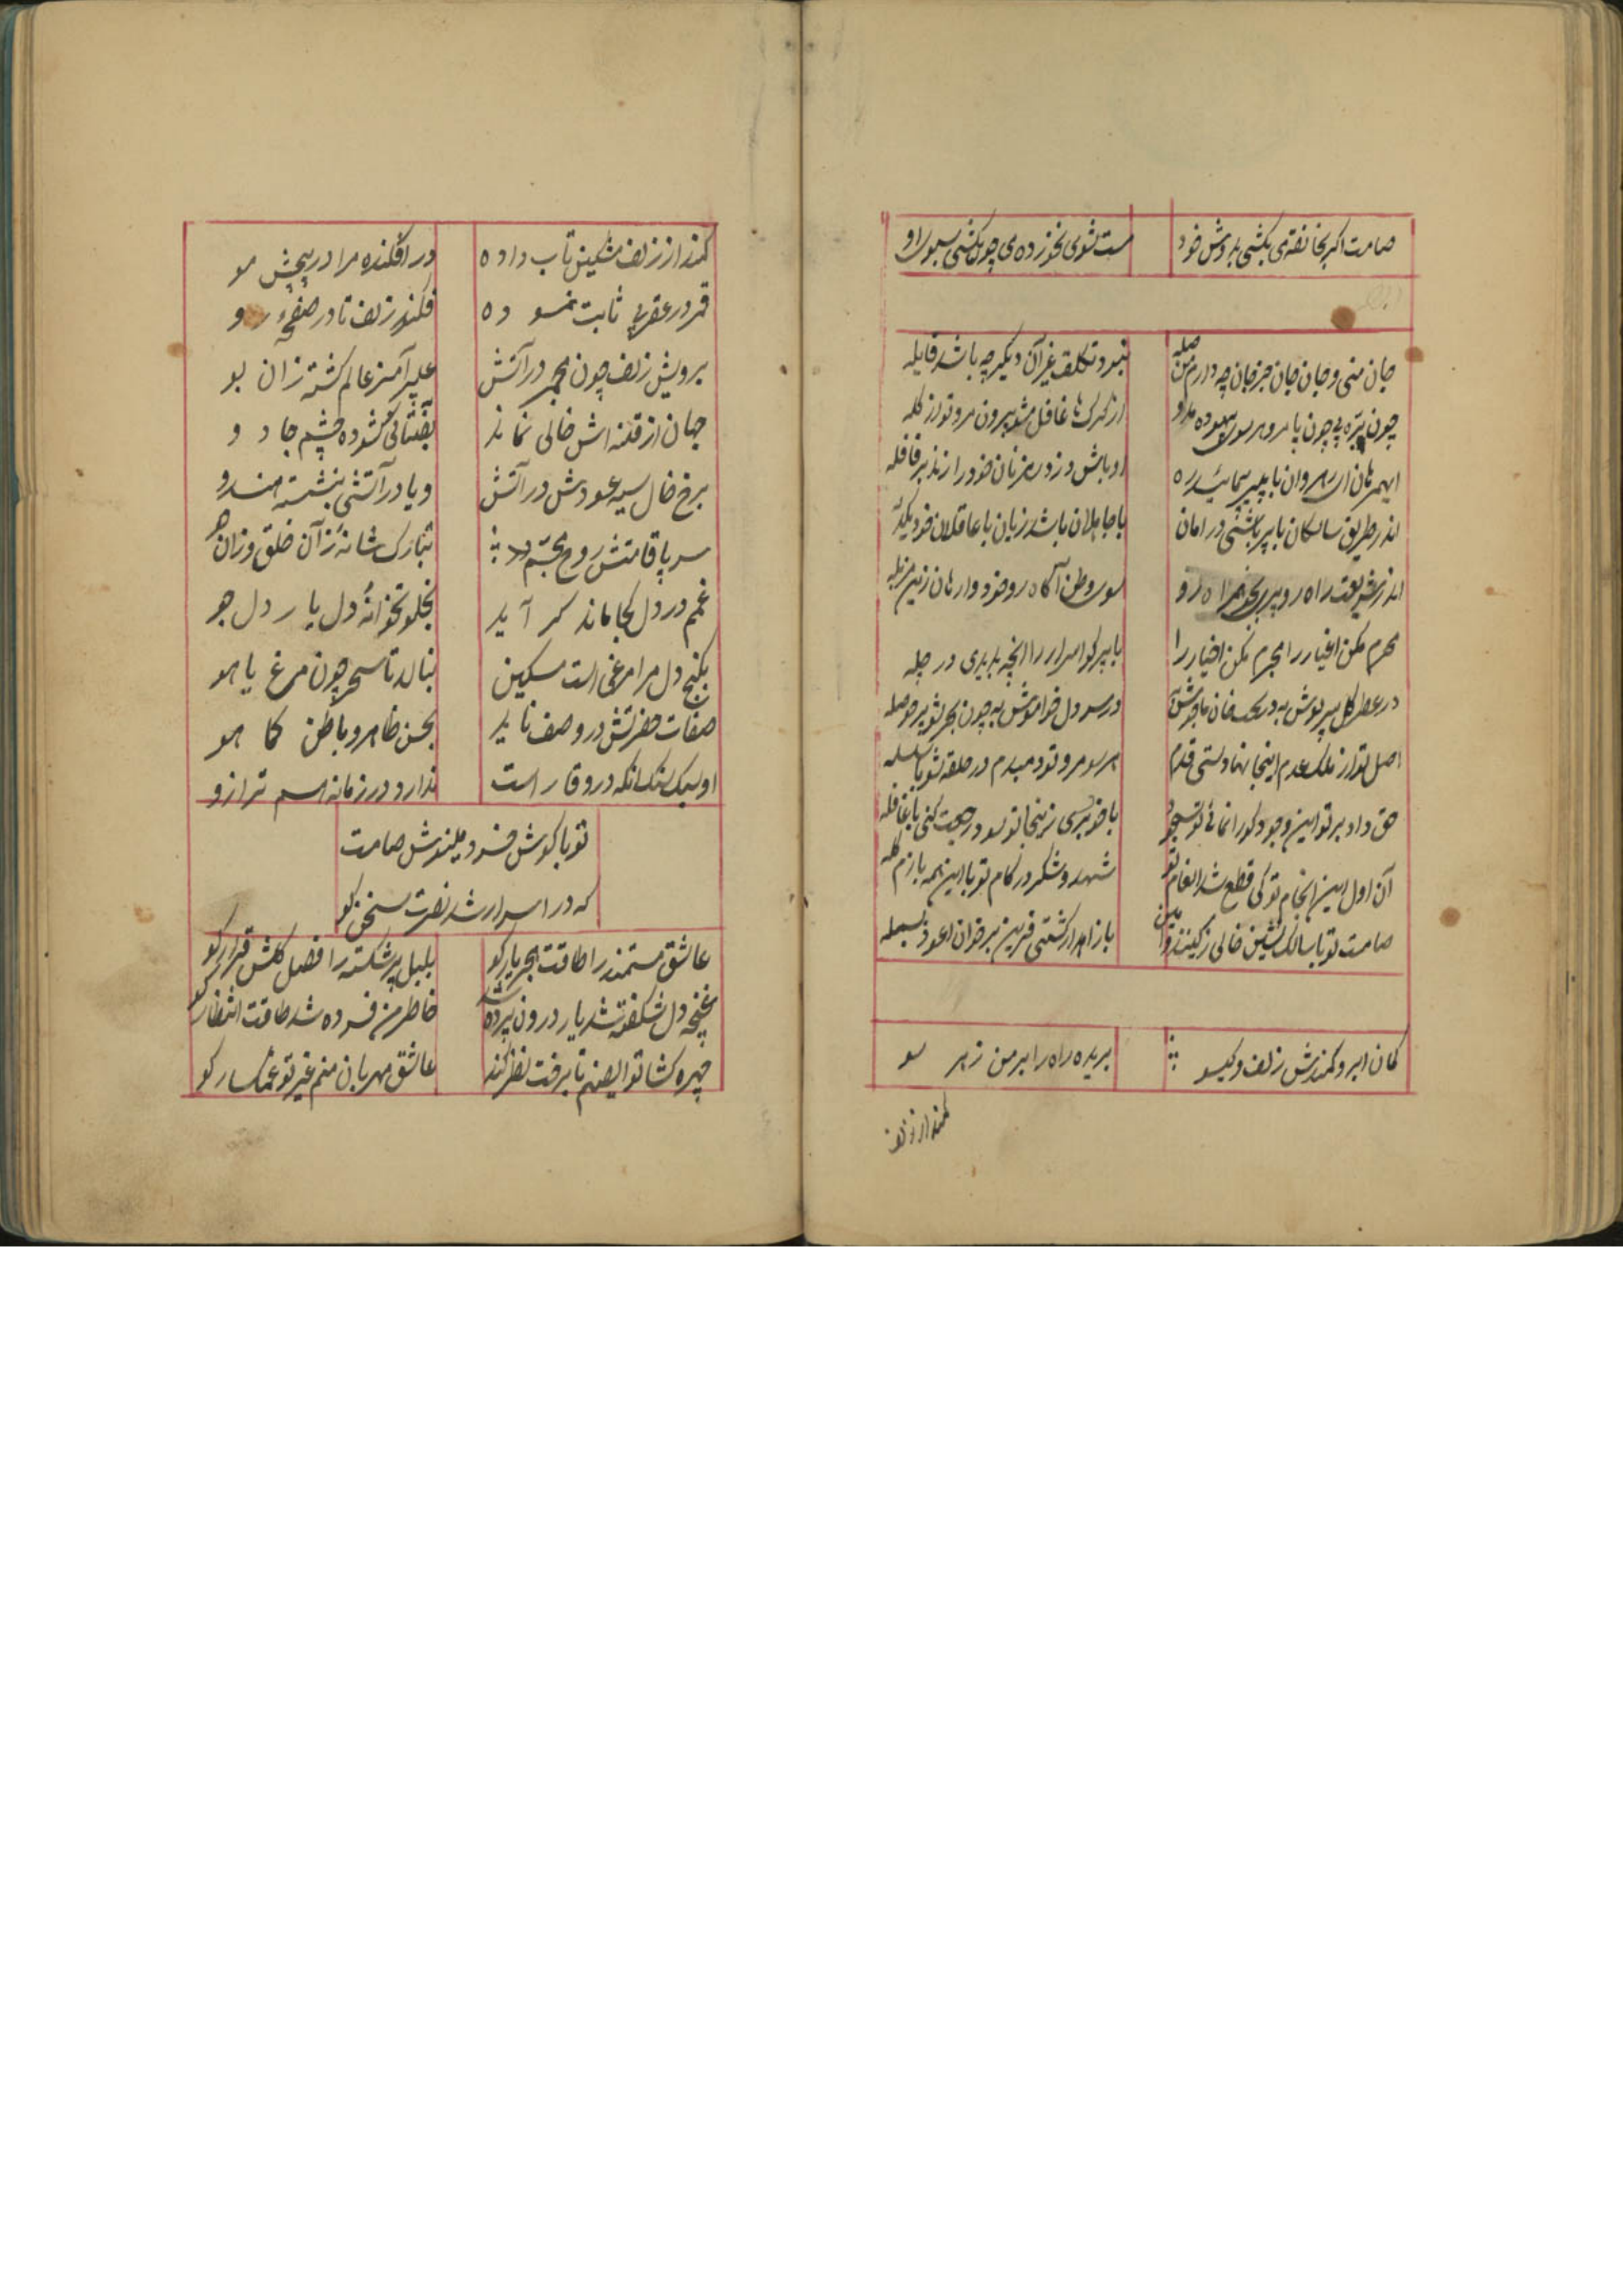 صامت اگر بخانقه می بکشی بدوش خود
مست شوی نخورده می چون بکشی سبوی او
جان منی و جان جان جز جان چه دارم من صله
نبود تکلف غیر آن دیگر چه باشد قابله
چون بره بی چون پا مرو هر سو بیهوده مدو
از گرک ها غافل مشو بیرون مرو تو از کله
ایهمرهان ای رهروان با پیر پیمائید ره
با جاهلان باشد زیان با عاقلان خود یکدله
اندر طریق سالکان با پیر باشی در امان
اندر شریعت راه رو پیر بجو همراه رو
سوی وطن آگاه رو خود وارهان زین مزبله
محرم مکن اغیار را مجرم مکن اخیار را
با پیر کو اسرار را آنچه بدیدی در چله
در سر دل خواموش به چون بحر شو پر حوصله
اصل تو از ملک عدم اینجا نهادستی قدم
هر سو مرو تو دمبدم در حلقه شو با سلسله
حق داد بر تو این وجود
آن اول این انجام تو کی قطع شد انعام تو
شهد و شکر در کام تو با این همه بازم کله
صامت تو با سالک نشین خالی ز کین
بر خوان اعوذ بسمله
کمان ابرو کمندش زلف و کیسو
بریده راه را بر من ز هر سو
کمند از زلف
کمند از زلف مشکین تاب داده
در افکنده مرا در پیچش مو
قمر در عقربی ثابت نموده
فکند زلف تا در صفحه رو
برویش زلف چون مجمر در آتش
عبیر آمیز عالم کشته زان بو
جهان از فتنه اش خالی نماند
بفتانی کشوده چشم جادو
برخ خال سیه عودش در آتش
و یا در آتشی بنشسته هندو
سر پا قامتش روح مجسم
تبارک شانه ز آن خلق و زان هو
غم در دل کجا ماند کر آید
بخلوتخوانهٔ دل یار دل جو
بکنج دل مرا مرغی است مسکین
بنالد تا سحر چون مرغ یاهو
صفات حضرتش در وصف ناید
بحسن ظاهر و باطن کما هو
او سبک سنک آنکه در وقار است
ندارد در زمانه اسم ترازو
تو با کوش خرد مینوش صامت
که در اسرار شد نصرت سخن کو
عاشق مستمند را طاقت هجر یار کو
بلبل پر شکسته را فصل کلش قرار کو
غنچه دل شکفته شد یار درون پرده شد
خاطر من فسرده شد طاقت انتظار کو
چهره کشا تو ایصنم تا برخت نظر کند
عاشق مهربان منم غیر تو غمکسار کو